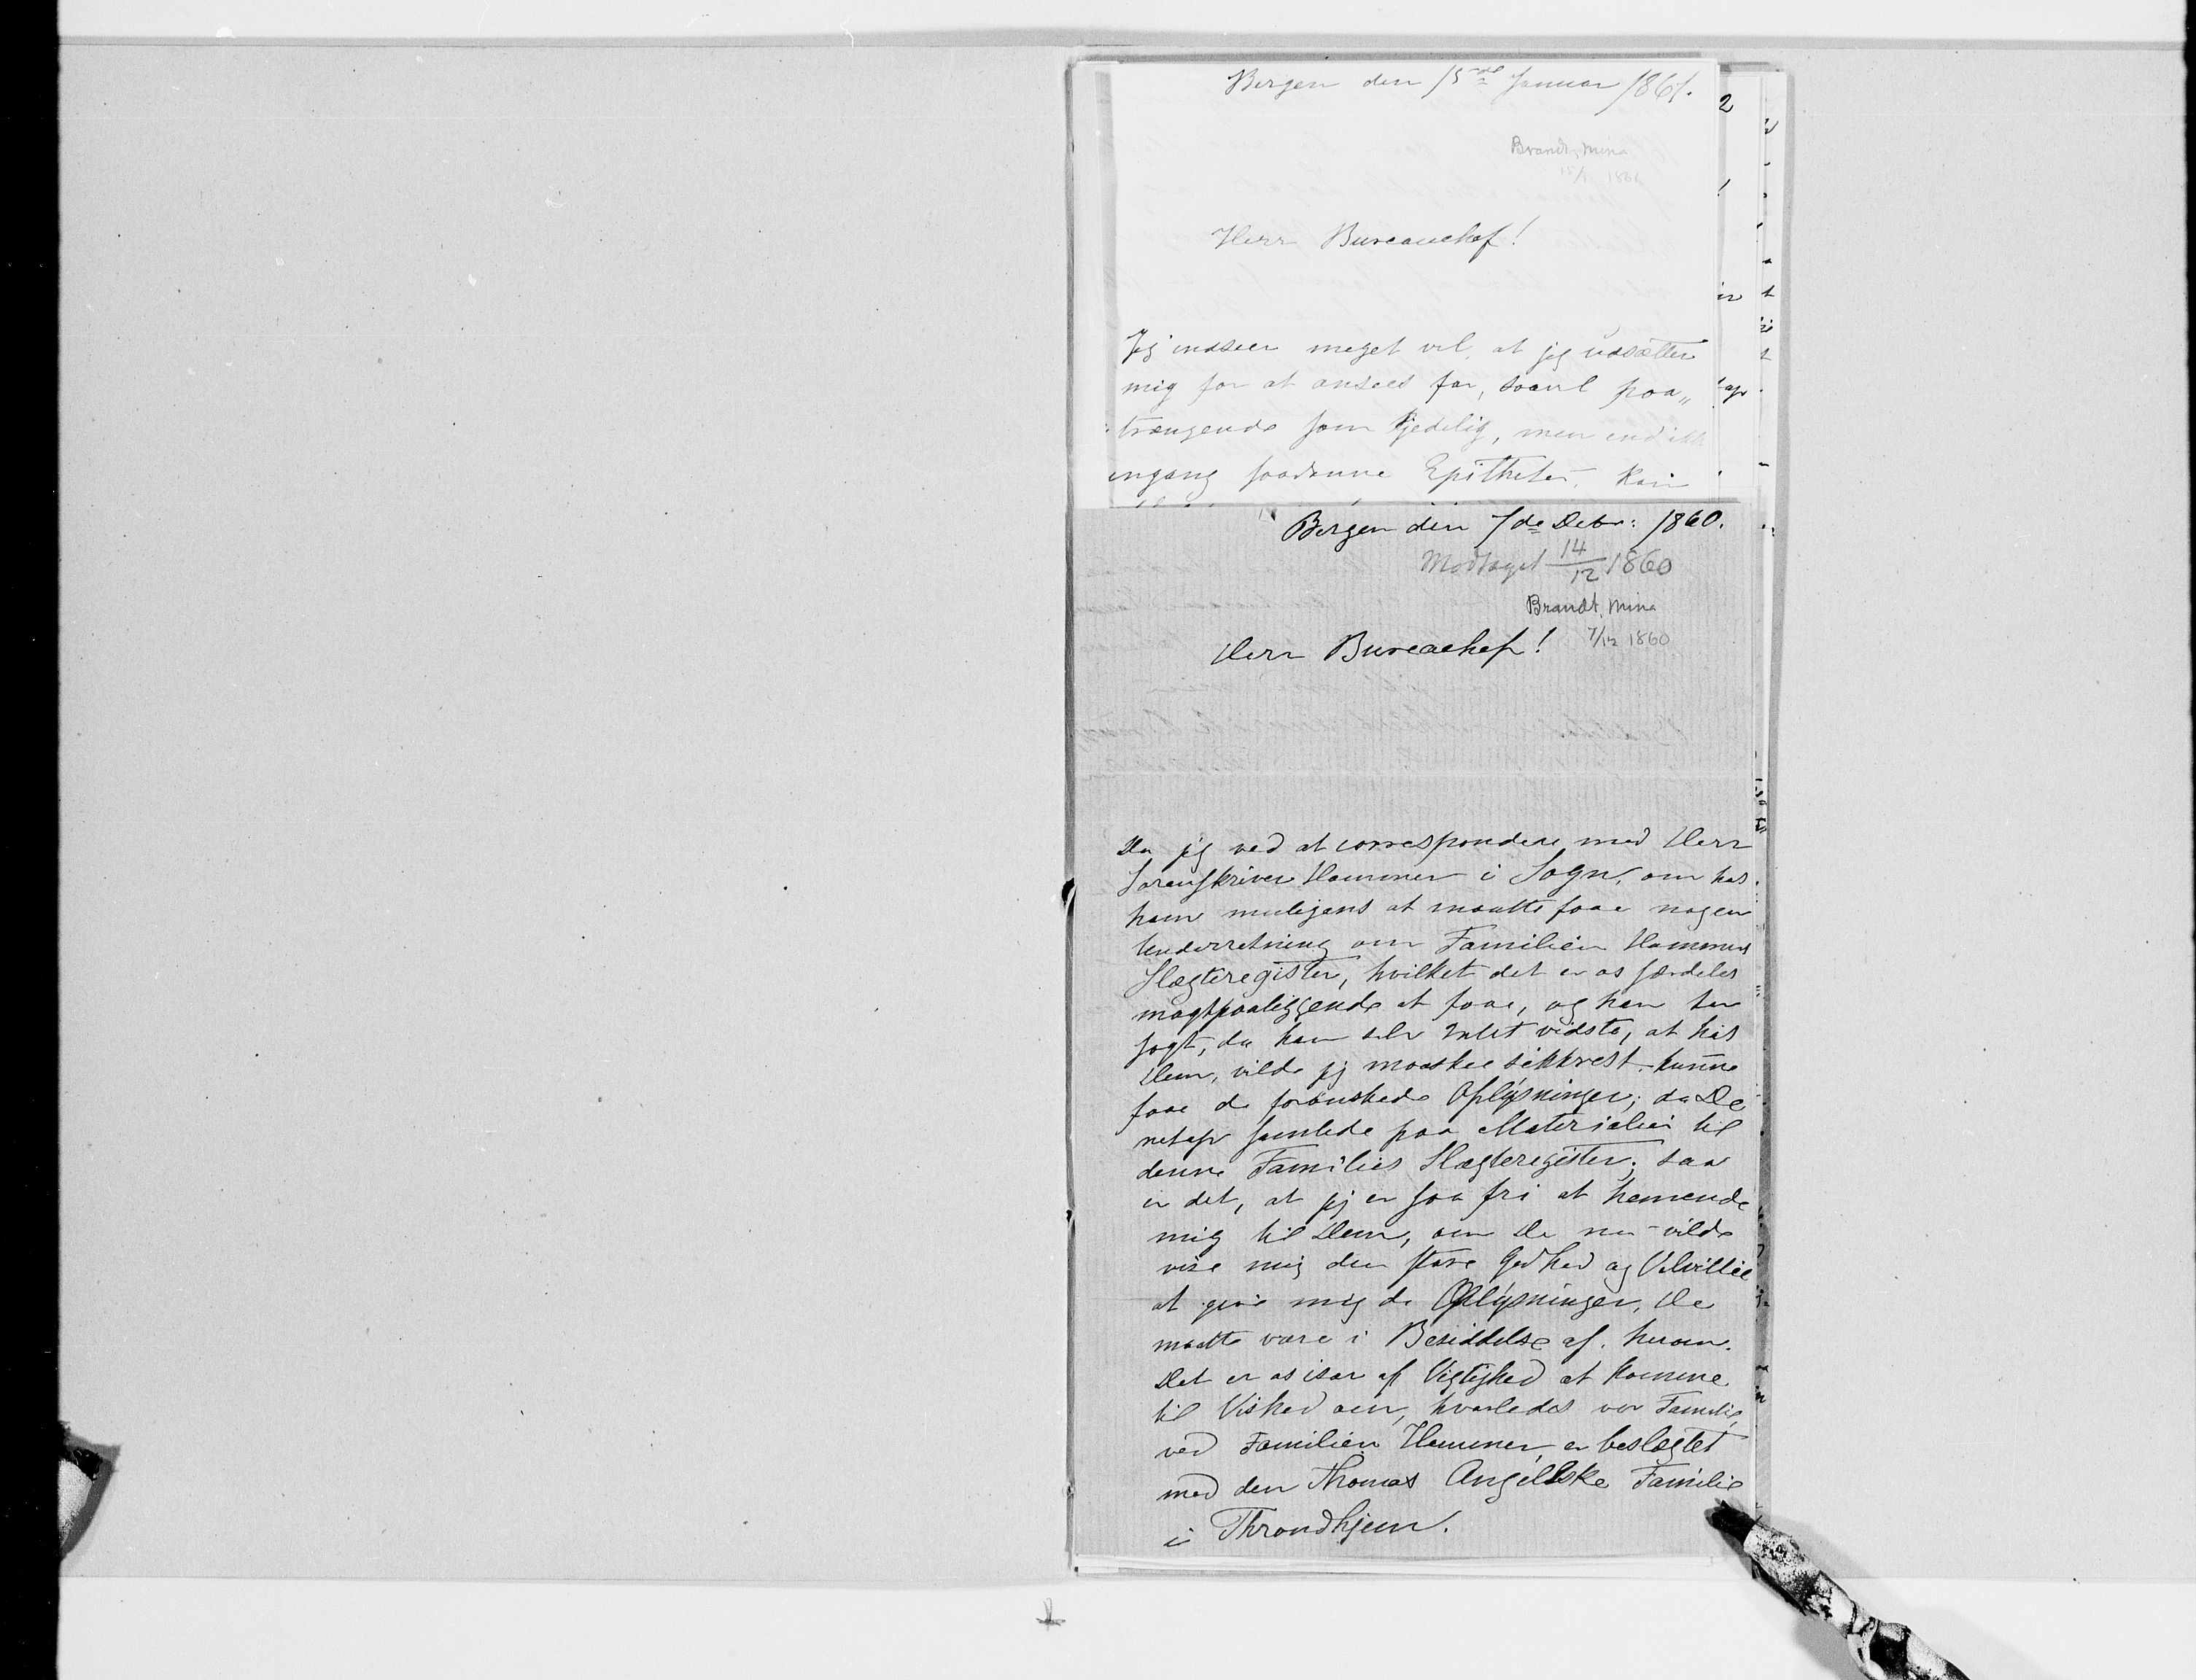 Bergen den 15nde Januar 1861.
Brandt, Mina
15/1 1861
Herr Bureauchef!
Jeg indseer meget vel, at jeg udsætter
mig for at ansees for, saavel paa„
trængende som kjedelig, men end ikke
engang saadanne Epitheter, kan
Bergen den 7de Debr: 1860.
Modtaget 14/12 1860
Brandt, Mina
7/12 1860
Herr Bureachef!
Da jeg ved at correspondere med Herr
Sorenskriver Hammer i Sogn, om hos
ham muligens at maatte faae nogen
Underretning om Familien Hammers
Slægteregister, hvilket det er os særdeles
magtpaaliggende at faae, og han har
sagt, da han selv Intet vidste, at hos
Dem, vilde jeg maaskee sikkrest kunne
faae de forønskede Oplysninger; da De
netop samlede paa Materialier til
denne Families Slægteregister; saa
er det, at jeg er saa fri at henvende
mig til Dem, om De nu vilde
vise mig den store Godhed og Velvillie
at give mig de Oplysninger, De
maatte være i Besiddelse af herom.
Det er os især af Vigtighed at komme
til Vished om, hvorledes vor Familie,
ved Familien Hammer, er beslægtet
med den Thomas Angellske Familie
i Throndhjem.